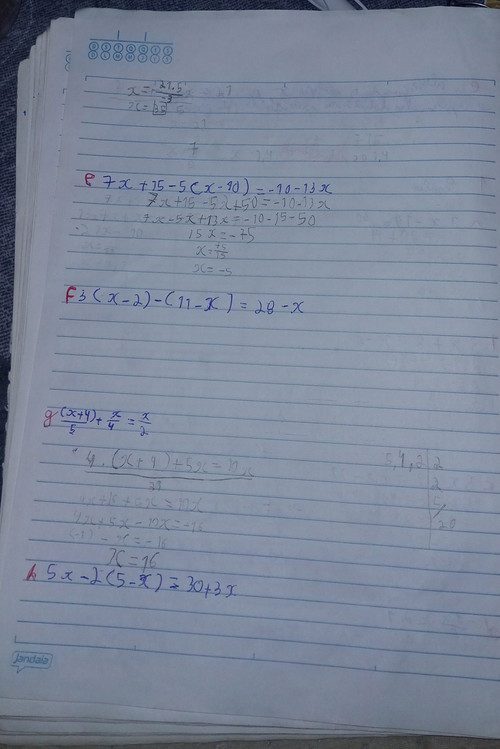 x = 
x = 
e 7x + 15 - 5(x - 10) = -10 - 13x
7x + 15 - 5x + 50 = -10 - 13x
7x - 5x + 13x = -10 - 15 - 50
15x = -75
x = 75/15
x = -5
F 3(x - 2) - (11 - x) = 28 - x
g (x+4)/5 + x/4 = x/2
4.(x + 4) + 5x = 10x
20
5, 4, 2 | 2
2
5
20
4x + 16 + 5x = 10x
4x + 5x - 10x = -16
(-1) - x = -16
x = 16
h 5x - 2(5 - x) = 30 + 3x
jandaia